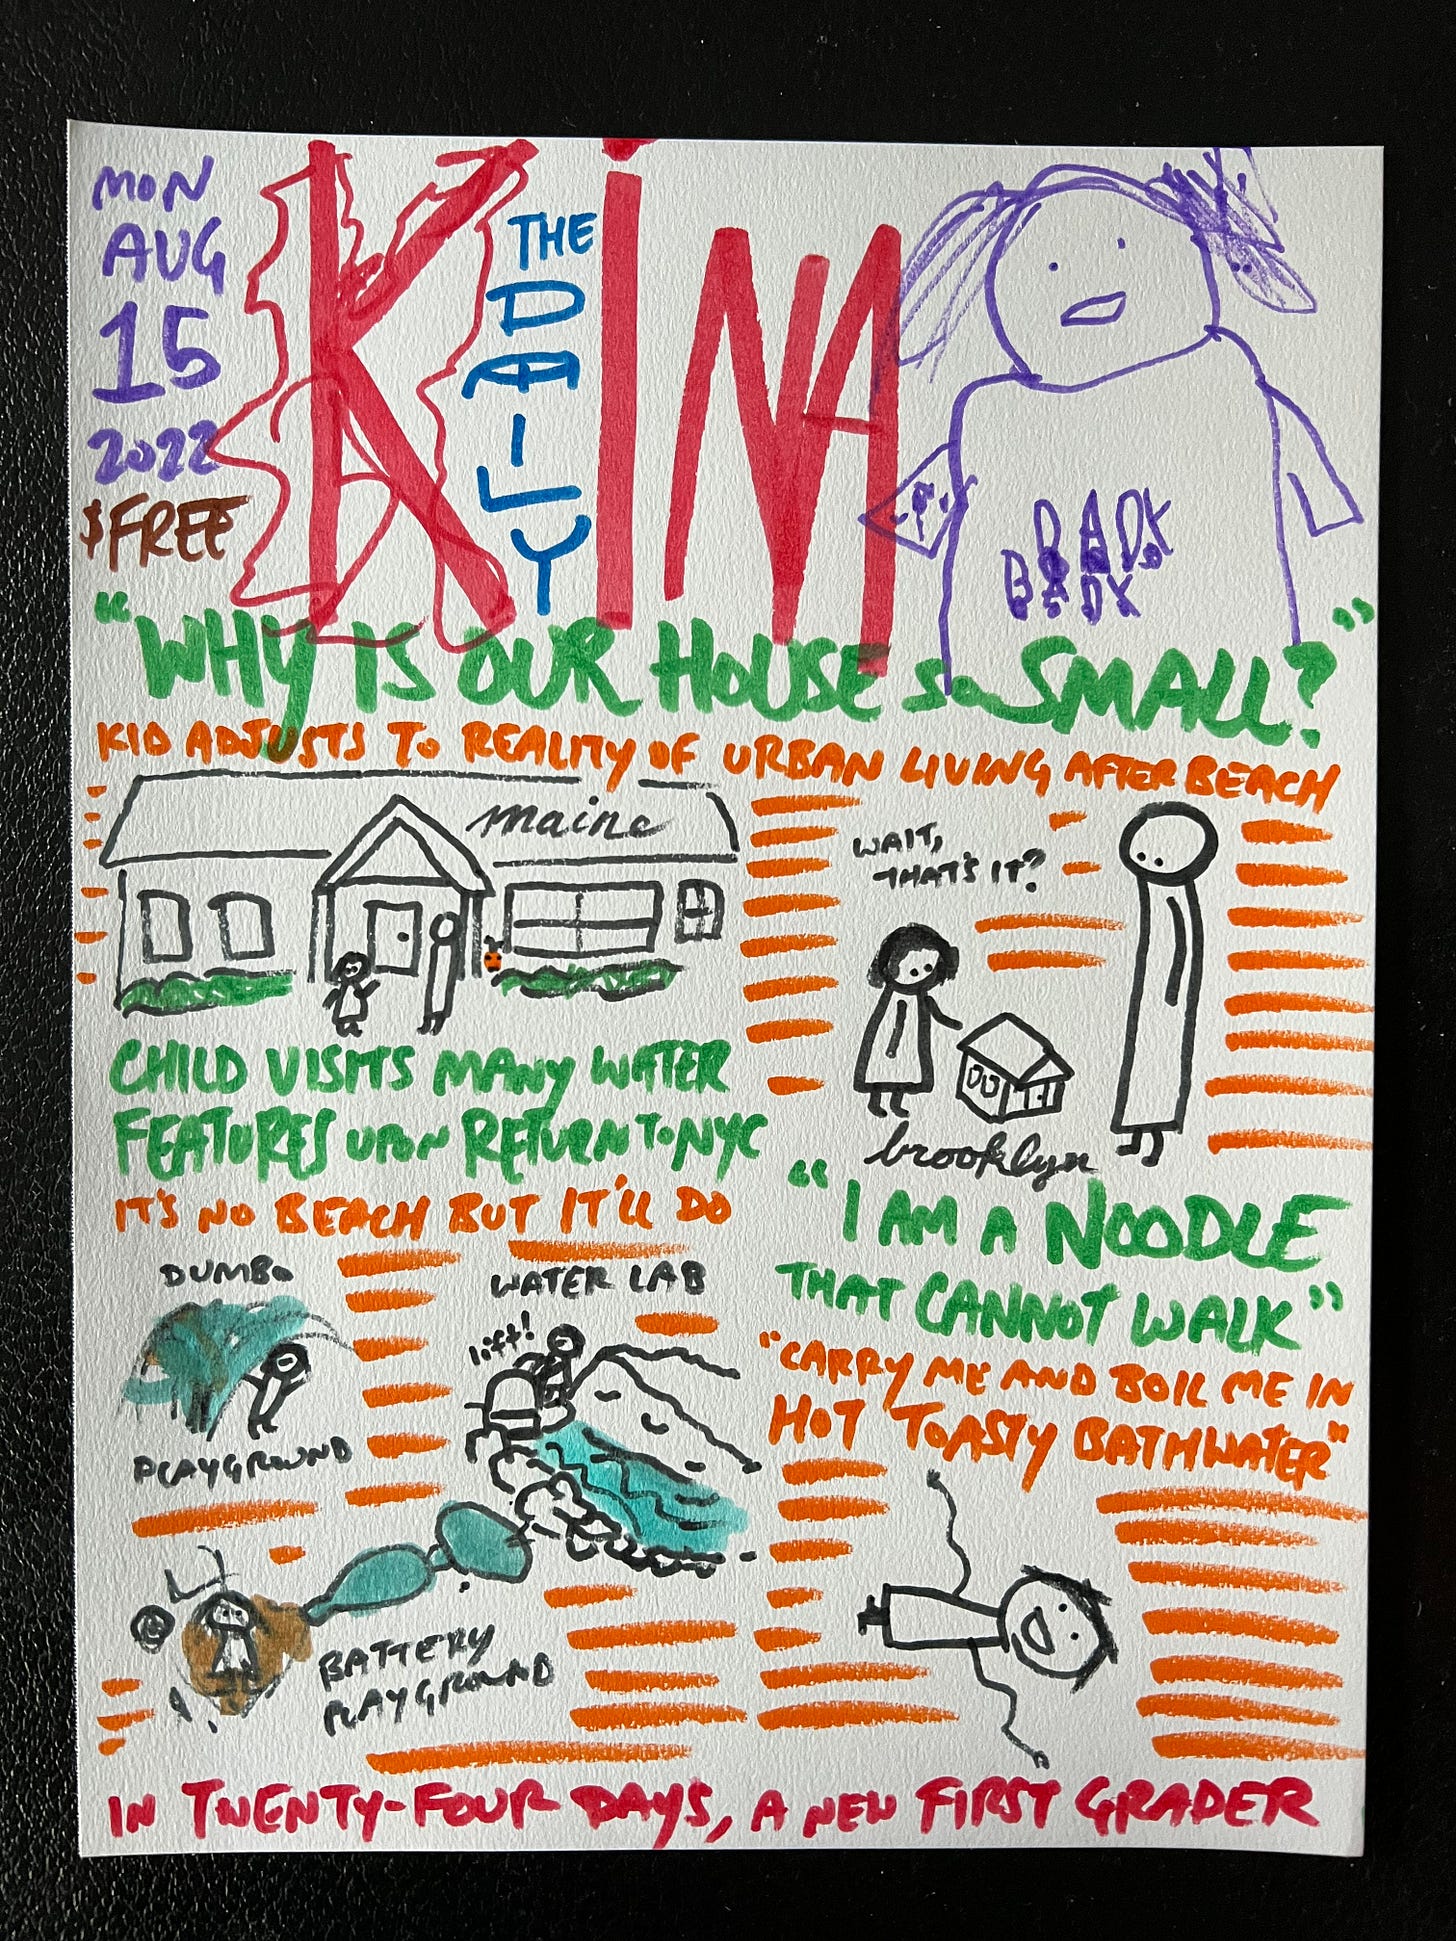 MON
AUG
15
2022
$FREE
THE
DAILY
KINA
"WHY IS OUR HOUSE SO SMALL?"
KID ADJUSTS TO REALITY OF URBAN LIVING AFTER BEACH
maine
WAIT,
THAT'S IT?
brooklyn
CHILD VISITS MANY WATER
FEATURES UPON RETURN TO NYC
IT'S NO BEACH BUT IT'LL DO
DUMBO
PLAYGROUND
WATER LAB
lift!
BATTERY
PLAYGROUND
"I AM A NOODLE
THAT CANNOT WALK"
"CARRY ME AND BOIL ME IN
HOT TOASTY BATHWATER"
IN TWENTY-FOUR DAYS, A NEW FIRST GRADER